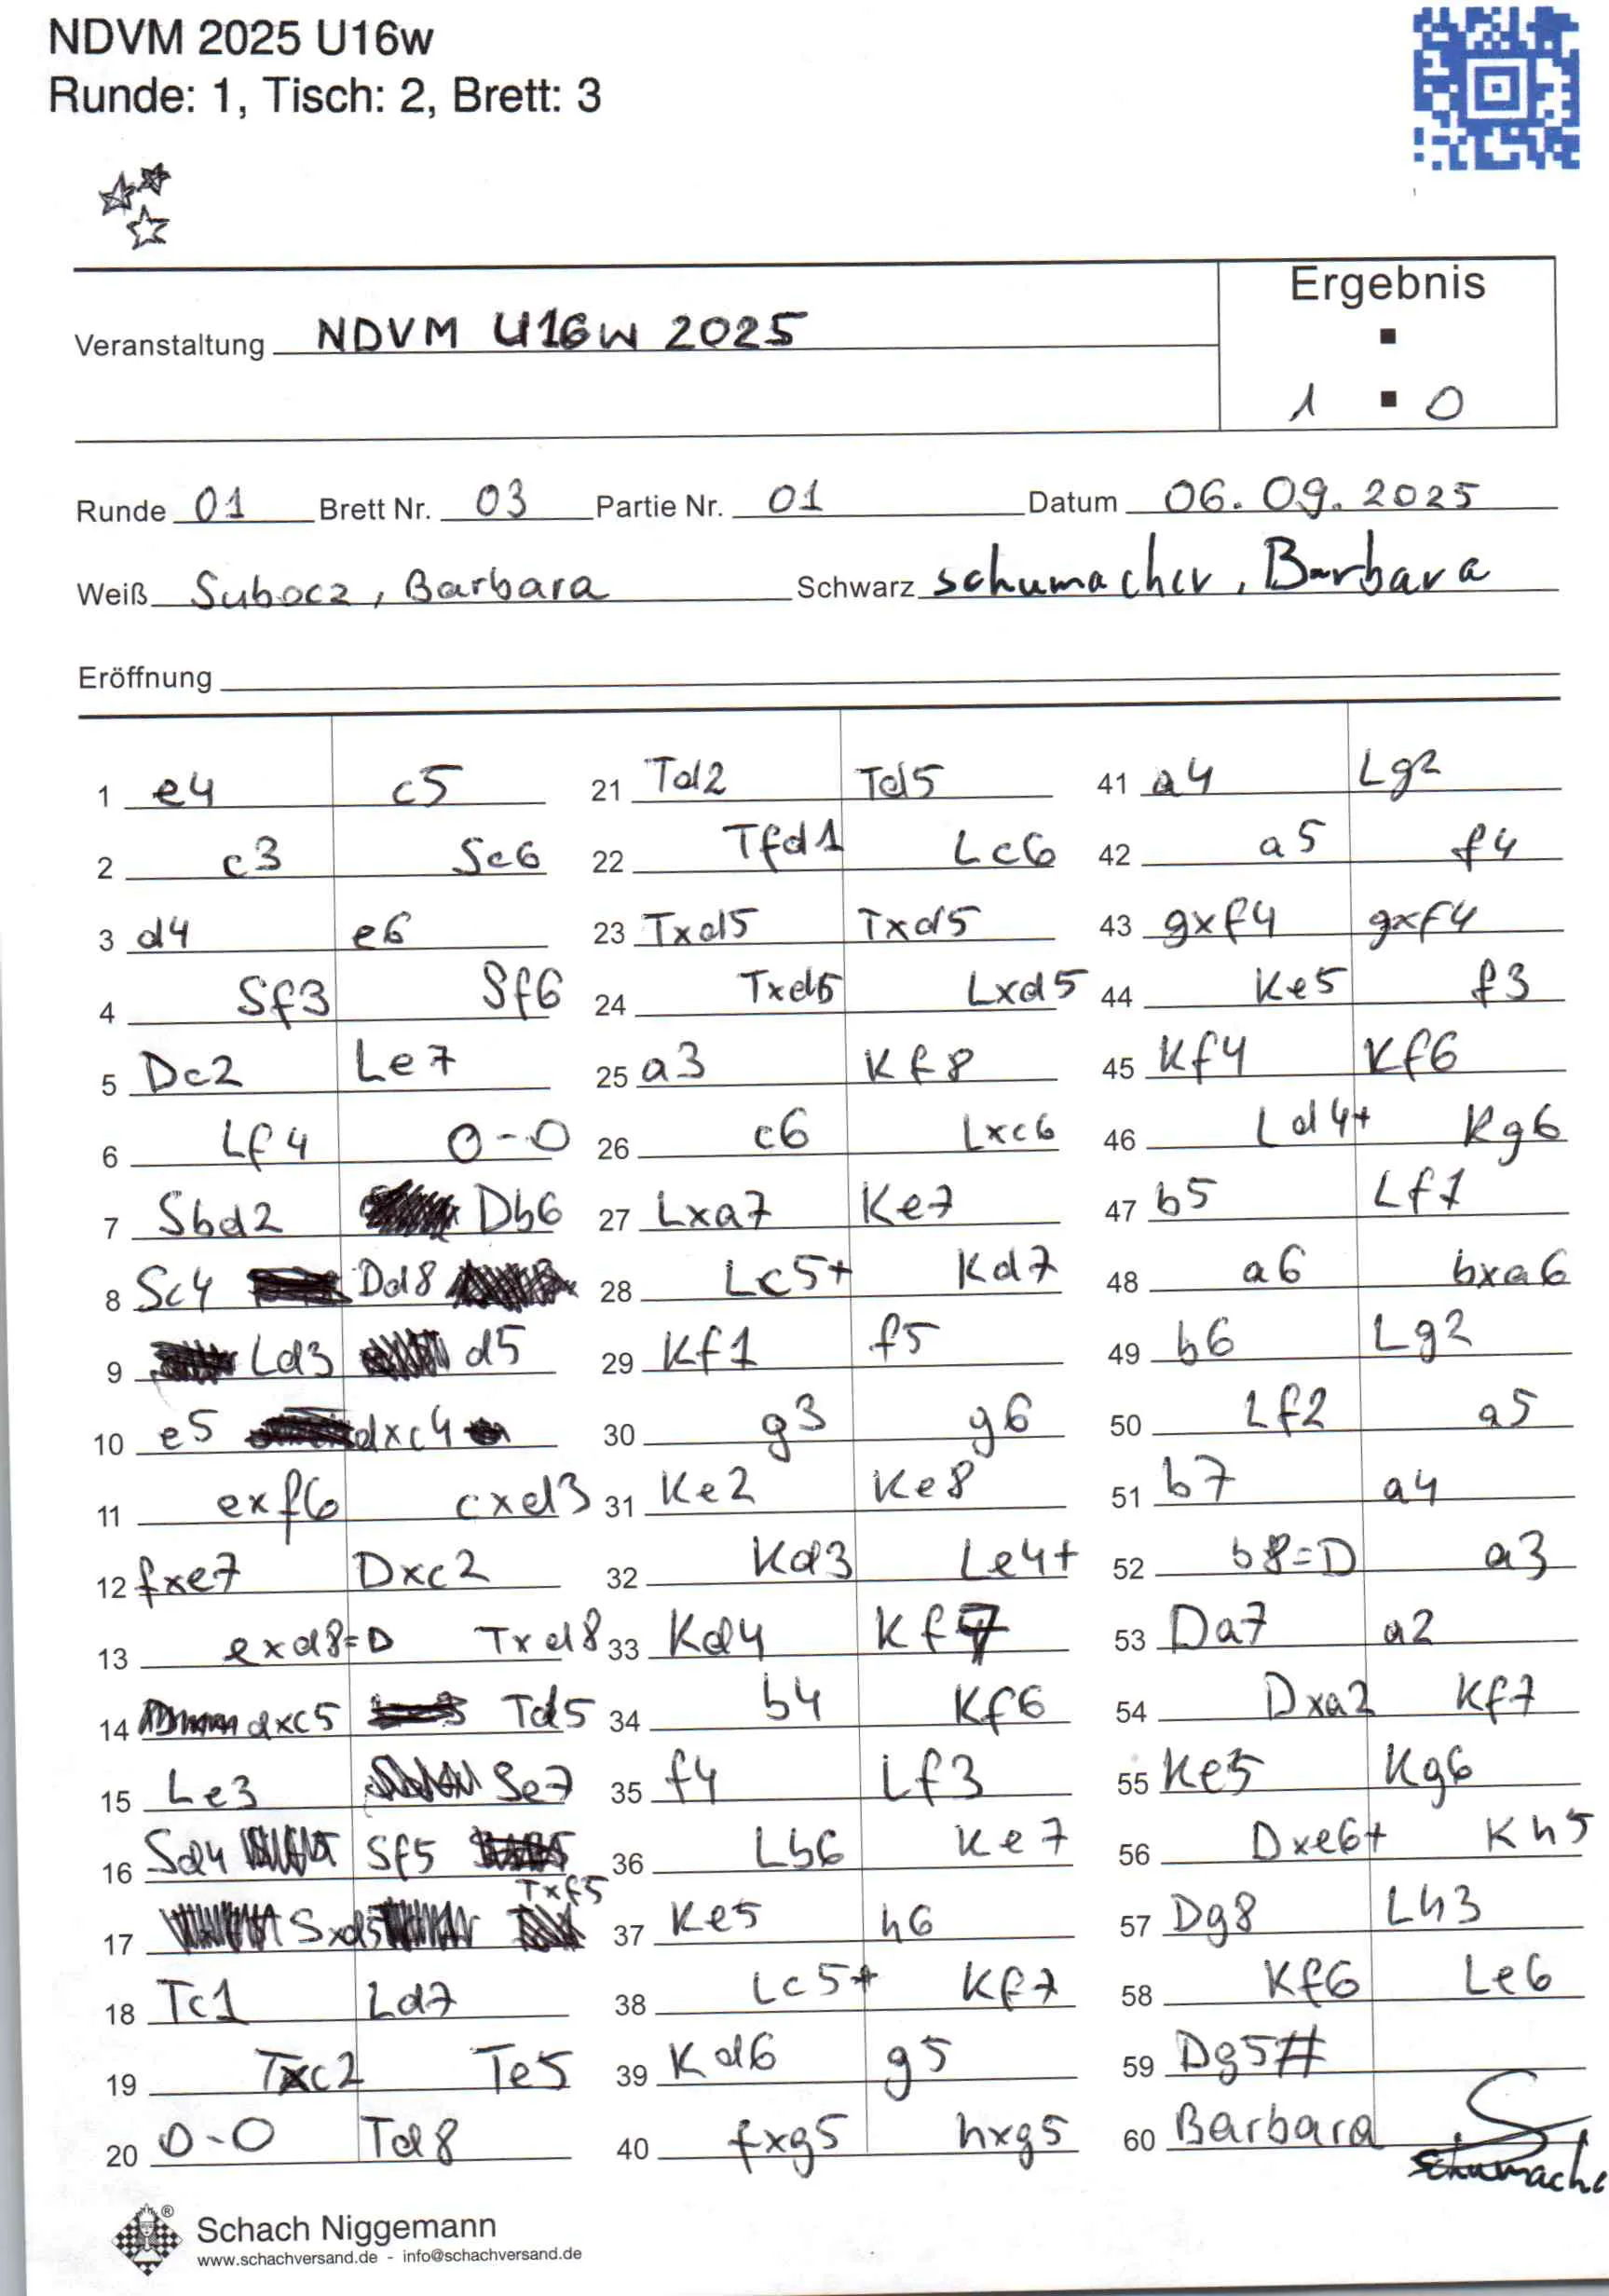 NDVM 2025 U16w
Runde: 1, Tisch: 2, Brett: 3
Ergebnis
Veranstaltung NDVM U16w 2025
1 : 0
Runde 01 Brett Nr. 03 Partie Nr. 01 Datum 06.09.2025
Weiß Subocz, Barbara Schwarz Schumacher, Barbara
Eröffnung
1 e4 c5 21 Td2 Td5 41 a4 Lg2
2 c3 Sc6 22 Tfd1 Lc6 42 a5 f4
3 d4 e6 23 Txd5 Txd5 43 gxf4 gxf4
4 Sf3 Sf6 24 Txd5 Lxd5 44 Ke5 f3
5 Dc2 Le7 25 a3 Kf8 45 Kf4 Kf6
6 Lf4 0-0 26 c6 Lxc6 46 Ld4+ Kg6
7 Sbd2 Db6 27 Lxa7 Ke7 47 b5 Lf1
8 Sc4 Dd8 28 Lc5+ Kd7 48 a6 bxa6
9 Ld3 d5 29 Kf1 f5 49 b6 Lg2
10 e5 dxc4 30 g3 g6 50 Lf2 a5
11 exf6 cxd3 31 Ke2 Ke8 51 b7 a4
12 fxe7 Dxc2 32 Kd3 Le4+ 52 b8=D a3
13 exd8=D Txd8 33 Kd4 Kf7 53 Da7 a2
14 dxc5 Td5 34 b4 Kf6 54 Dxa2 Kf7
15 Le3 Se7 35 f4 Lf3 55 Ke5 Kg6
16 Sd4 Sf5 36 Lb6 Ke7 56 Dxe6+ Kh5
17 Sxd5 Txf5 37 Ke5 h6 57 Dg8 Lh3
18 Tc1 Ld7 38 Lc5+ Kf7 58 Kf6 Le6
19 Txc2 Te5 39 Kd6 g5 59 Dg5#
20 0-0 Td8 40 fxg5 hxg5 60 Barbara Schumache
®
Schach Niggemann
www.schachversand.de - info@schachversand.de